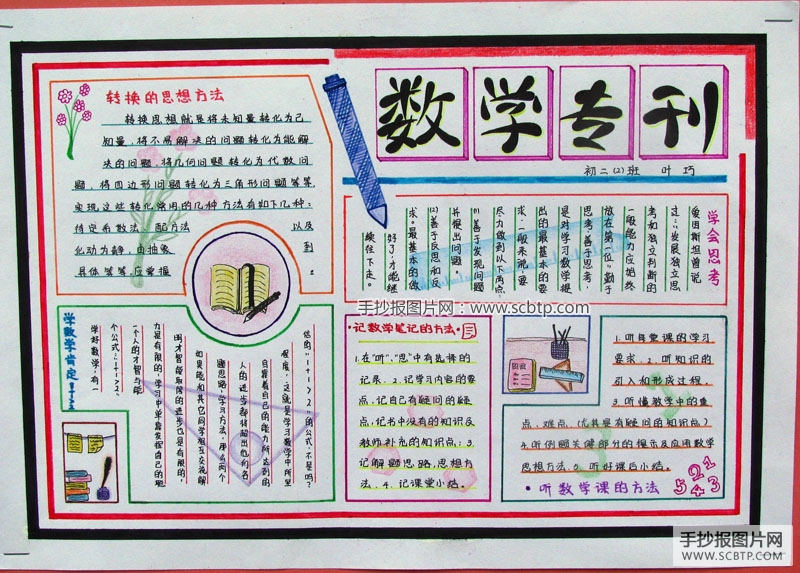 数学专刊
初二(2)班 叶巧
转换的思想方法
转换思想就是将未知量转化为已
知量,将不易解决的问题转化为能解
决的问题,将几何问题转化为代数问
题,将四边形问题转化为三角形问题等等.
实现这些转化常用的几种方法有如下几种:
待定系数法、配方法 以及
化动为静、由抽象 到
具体等等,应掌握 。
学会思考
爱因斯坦曾说
过:“发展独立思
考和独立判断的
一般能力应始终
放在第一位”勤于
思考,善于思考
是对学习数学提
出的最基本的要
求.一般来说要
尽力做到以下两点.
(1)善于发现问题
并提出问题。
(2)善于反思和反
求。最基本的做
好了,才能继
续往下走。
手抄报图片网:www.scbtp.com
学数学肯定1+1>2
学好数学,有一
个公式:“1+1>2”
一个人的才智与能
力是有限的,学习中单靠发挥自己的聪
明才智能取得的进步也是有限的,
如果能和其它同学相互交流解
题思路,学习方法,那么两个
人的进步都将超出他们各
自靠着自己的能力所达到的
程度,这就是学习数学中所里
“1+1>2”的公式,不是吗?
·记数学笔记的方法·
1.在“听”、“思”中有选择的
记录。2.记学习内容的要
点,记自己有疑问的疑
点,记书中没有的知识及
教师补充的知识点;3.
记解题思路,思想方
法.4.记课堂小结。
1.听每堂课的学习
要求.2.听知识的
引入和形成过程.
3.听懂教学中的重
点、难点(尤其是有疑问的知识点)
4.听例题关键部分的提示及应用数学
思想方法.5.听好课后小结。
·听数学课的方法
5 2 4 1 3
手抄报图片网
WWW.SCBTP.COM